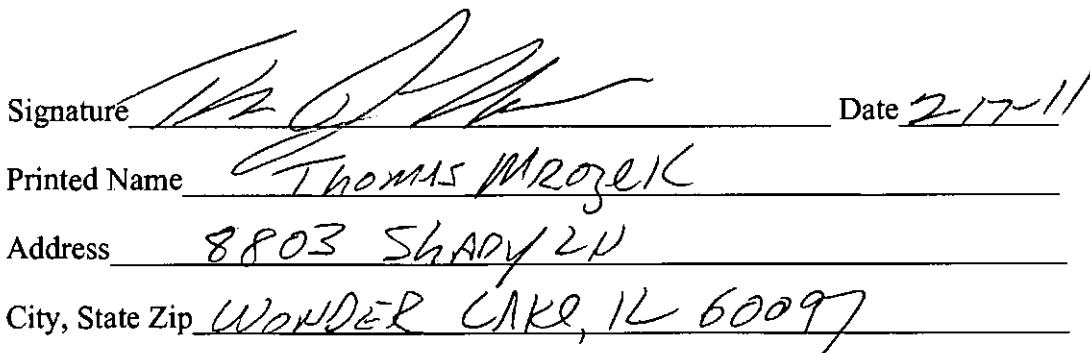 Signature Date 2-17-11
Printed Name Thomas Mrozek
Address 8803 Shady LN
City, State Zip WONDER LAKe, IL 60097